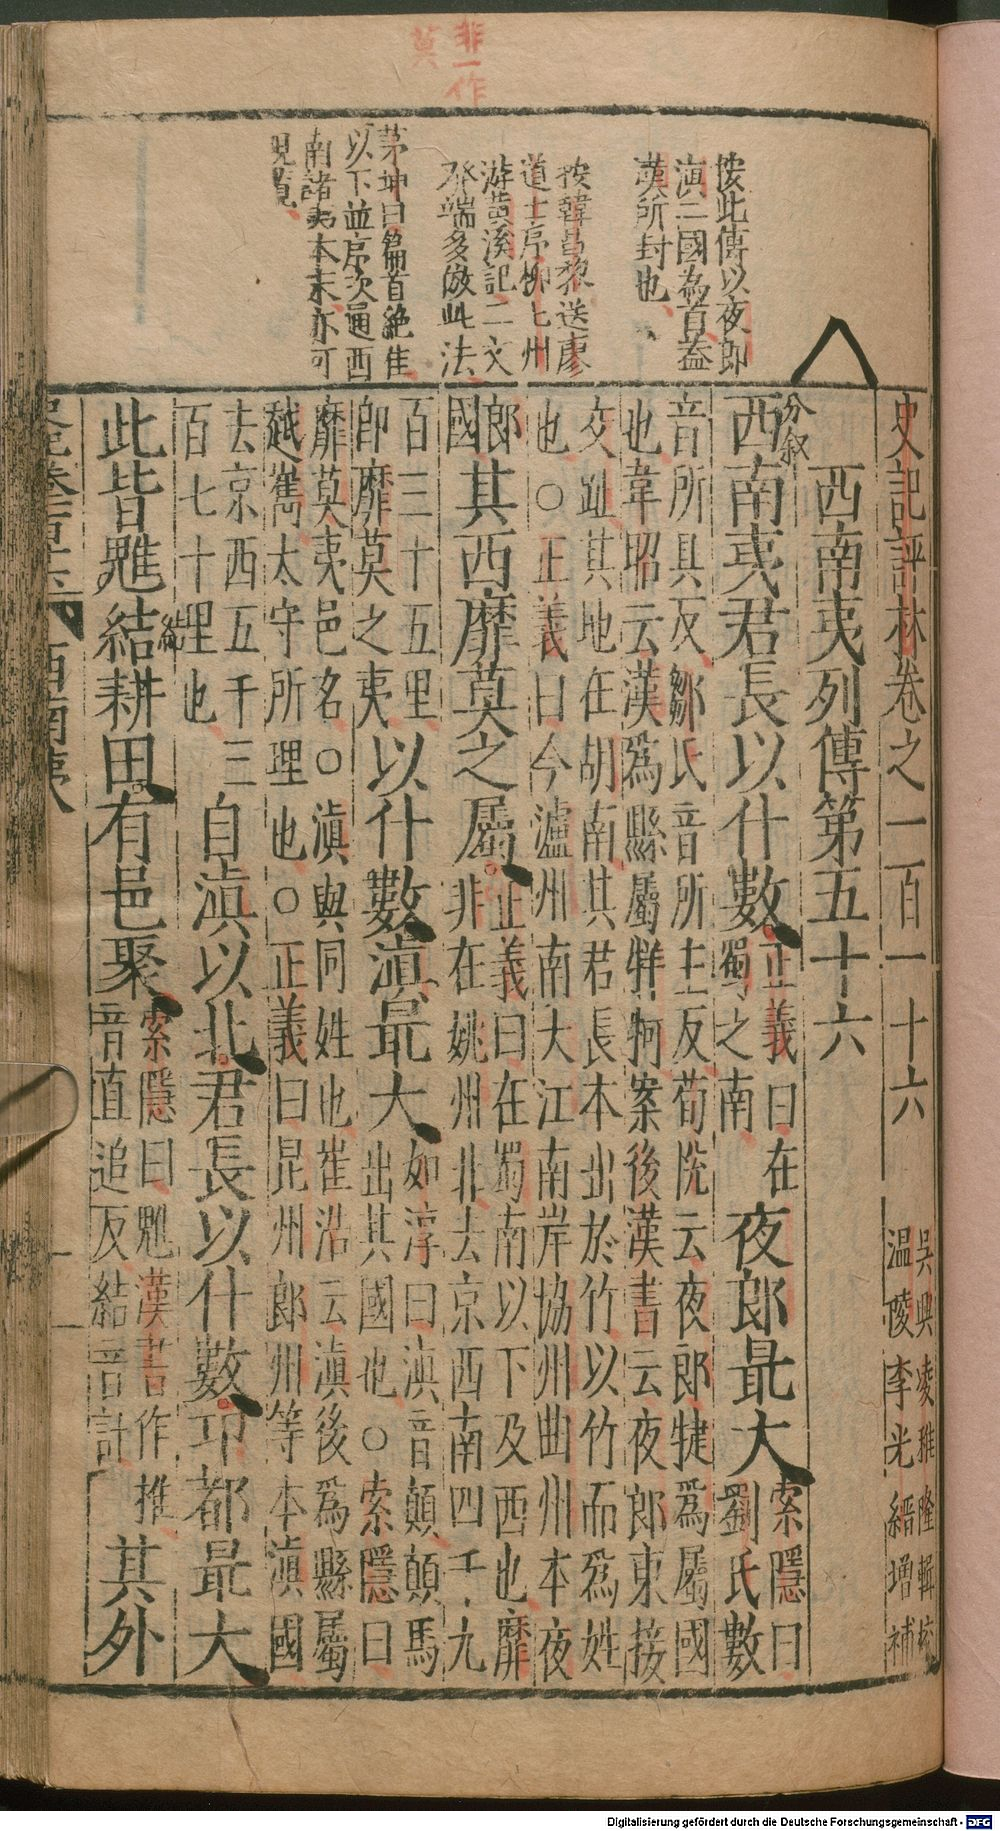 非一作
莫
按此傳以夜郎
滇二國為首蓋
漢所封也
按韓昌黎送廖
道士序柳州
游黃溪記二文
發端多倣此法
茅坤曰篇首絶佳
以下並序次通西
南諸夷本末亦可
覽
史記評林卷之一百一十六
吳興凌稚隆輯校
温陵李光縉增補
西南夷列傳第五十六
分叙
西南夷君長以什數
正義曰在
蜀之南
夜郎最大
索隱曰
劉氏數
音所具反鄒氏音所主反荀悅云夜郎犍為屬國
也韋昭云漢為縣屬牂牁案後漢書云夜郎東接
交趾其地在胡南其君長本出於竹以竹而為姓
也○正義曰今瀘州南大江南岸協州曲州本夜
郎
國
其西靡莫之屬
正義曰在蜀南以下及西也靡
非在姚州北去京西南四千九
百三十五里
即靡莫之夷
以什數滇最大
如淳曰滇音顛顛馬
出其國也○索隱曰
靡莫夷邑名○滇與同姓也崔浩云滇後為縣屬
越嶲太守所理也○正義曰昆州郎州等本滇國
去京西五千三
百七十里也
自滇以北君長以什數卭都最大
此皆魋結耕田有邑聚
索隱曰魋漢書作椎
音直追反結音計
其外
西南夷
一
Digitalisierung gefördert durch die Deutsche Forschungsgemeinschaft - DFG